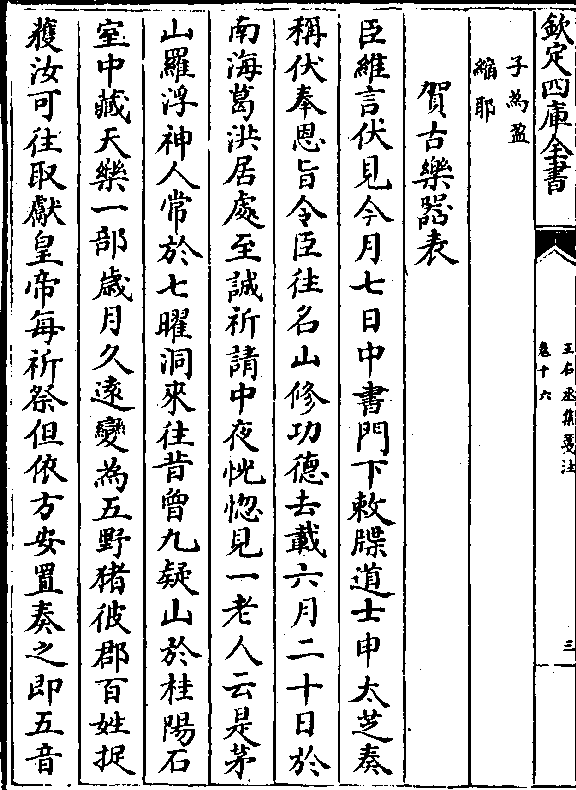 欽定四庫全書
王右丞集箋注
卷十六
三
子為盈
縮耶
賀古樂器表
臣維言伏見今月七日中書門下敕牒道士申太芝奏
稱伏奉恩旨令臣往名山修功德去載六月二十日於
南海葛洪居處至誠祈請中夜恍惚見一老人云是茅
山羅浮神人常於七曜洞來往昔曾九疑山於桂陽石
室中藏天樂一部歲月久遠變為五野豬彼郡百姓捉
獲汝可往取獻皇帝每祈祭但依方安置奏之即五音